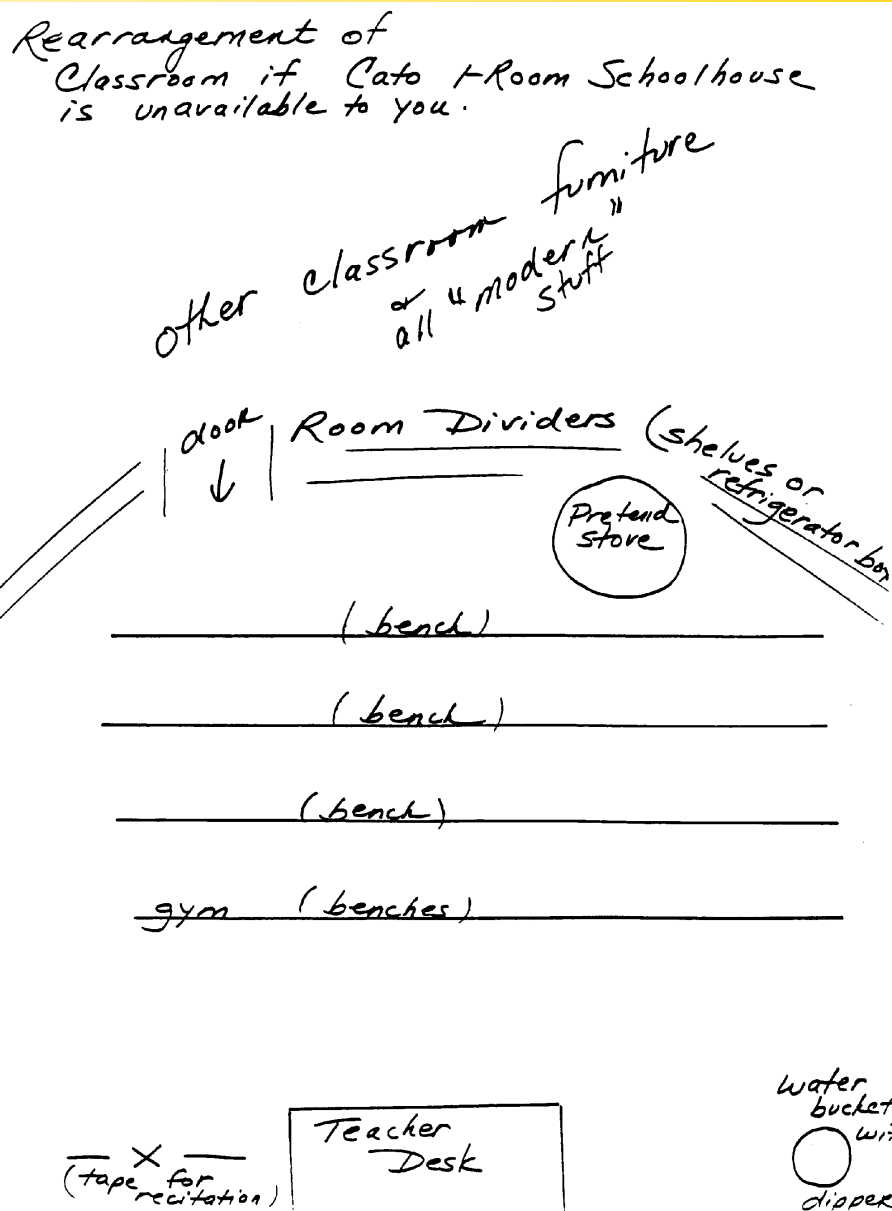 Rearrangement of
Classroom if Cato 1-Room Schoolhouse
is unavailable to you.
other classroom furniture
or
all "modern"
stuff
door
Room Dividers (shelves or
refrigerator box
Pretend
stove
(bench)
(bench)
(bench)
gym (benches)
Teacher
Desk
X
(tape for
recitation)
water
bucket
wit
dipper